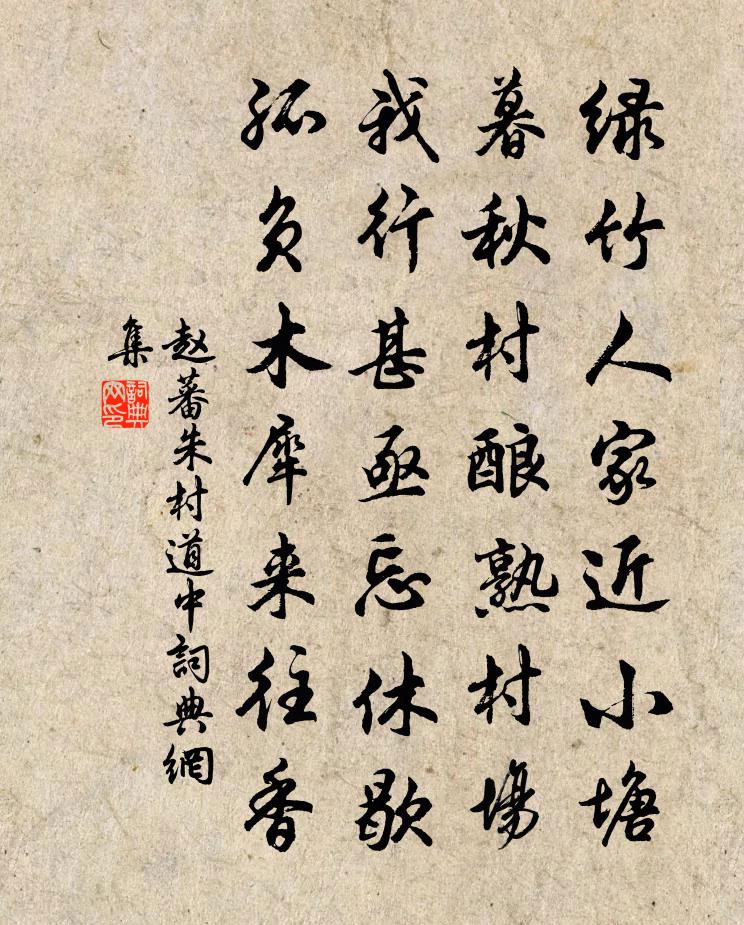 绿竹人家近小塘
暮秋村酿熟村場
我行甚亟忘休歇
孤负木犀来往香
赵蕃朱村道中詞典網
集
詞典
网印